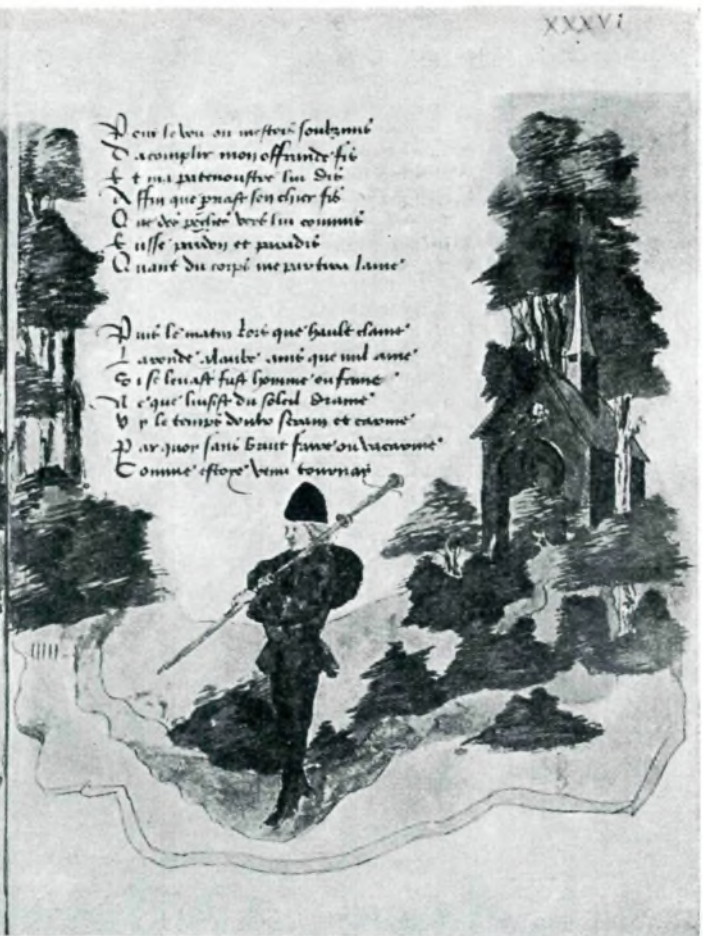 xxxvi
Pour le veu ou mestois soubzmis
D acomplir mon offrande fis
E t ma patenoustre lui dis
A ffin que priast son chier fis
Q ue des pechies vers lui commis
E usse pardon et paradis
Q uant du corps me partira lame
P uis le matin lors que hault clame
L aronde alaube ains que nul ame
S i se levast fust homme ou femme
N e que luisist du soleil
V y le temps doubz serain et
P ar quoy sans bruit faire ou vacarme
C omme estoye venu tournay